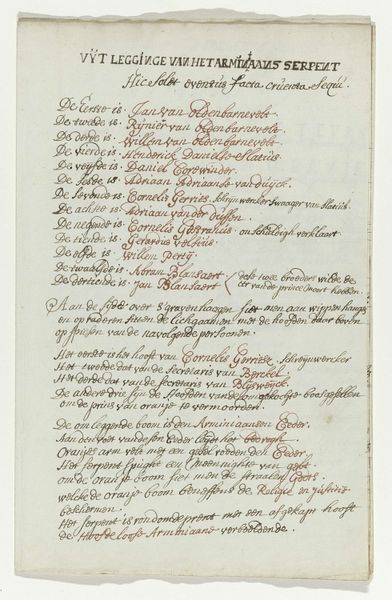 VYT LEGGINGE VAN HET ARMINIAANS SERPENT
Hic Solet eventus facta cruenta Sequi.
De Eerste is. Jan van Oldenbarnevelt
De tweede is. Reynier van Oldenbarnevelt.
De derde is. Willem van Oldenbarnevelt
De vierde is. Henderick Danielse Slatius
De vijfde is. Daniel Coorwinder.
De sesde is. Adriaan Adriaanse van Duyck.
De sevende is. Cornelis Gerrits. Schrijnwercker swager van Slatius
De achste is. Adriaan vander Dussen.
De negende is. Cornelis Geesranus onschuldigh verklaart
De tiende is. Gerardus velsius
De elfde is. Willem Perty.
De twaalfde is. Abram Blansaert
De dertiende is. Jan Blansaert
dese twee broeders wilde de
eer van de prince moort hebben.
Aan de sijde over 's gravenhaagen siet men aan wippen hangen
en op raderen sitten de lichaamen met de hoofden daar boven
op spiesen van de navolgende persoonen.
Het eerste is het hooft van Cornelis Gerritse Schrijnwercker
Het tweede dat van de Secretaris van Berckel
Het derde dat van de secretaris van Bleyswyck.
De andere drie sijn de Hoofden van de omgekochte boosgesellen
om de prins van oranje te vermoorden.
De omleggende boom is den Arminiaansen Ceder.
Aan den voet van desen Ceder leydt het bedrogh
Oranjes arm velt met een gebel rodden den Ceder.
Het serpent spuight een meenighte van gift
om de oranje boom siet men de straalen Godts
welcke de oranje boom beneffens de Religie en justitie
beschermen.
Het serpent is rondom de prent met een afgekapt hooft
de Hoofdeloose Arminiaane verbeeldende.